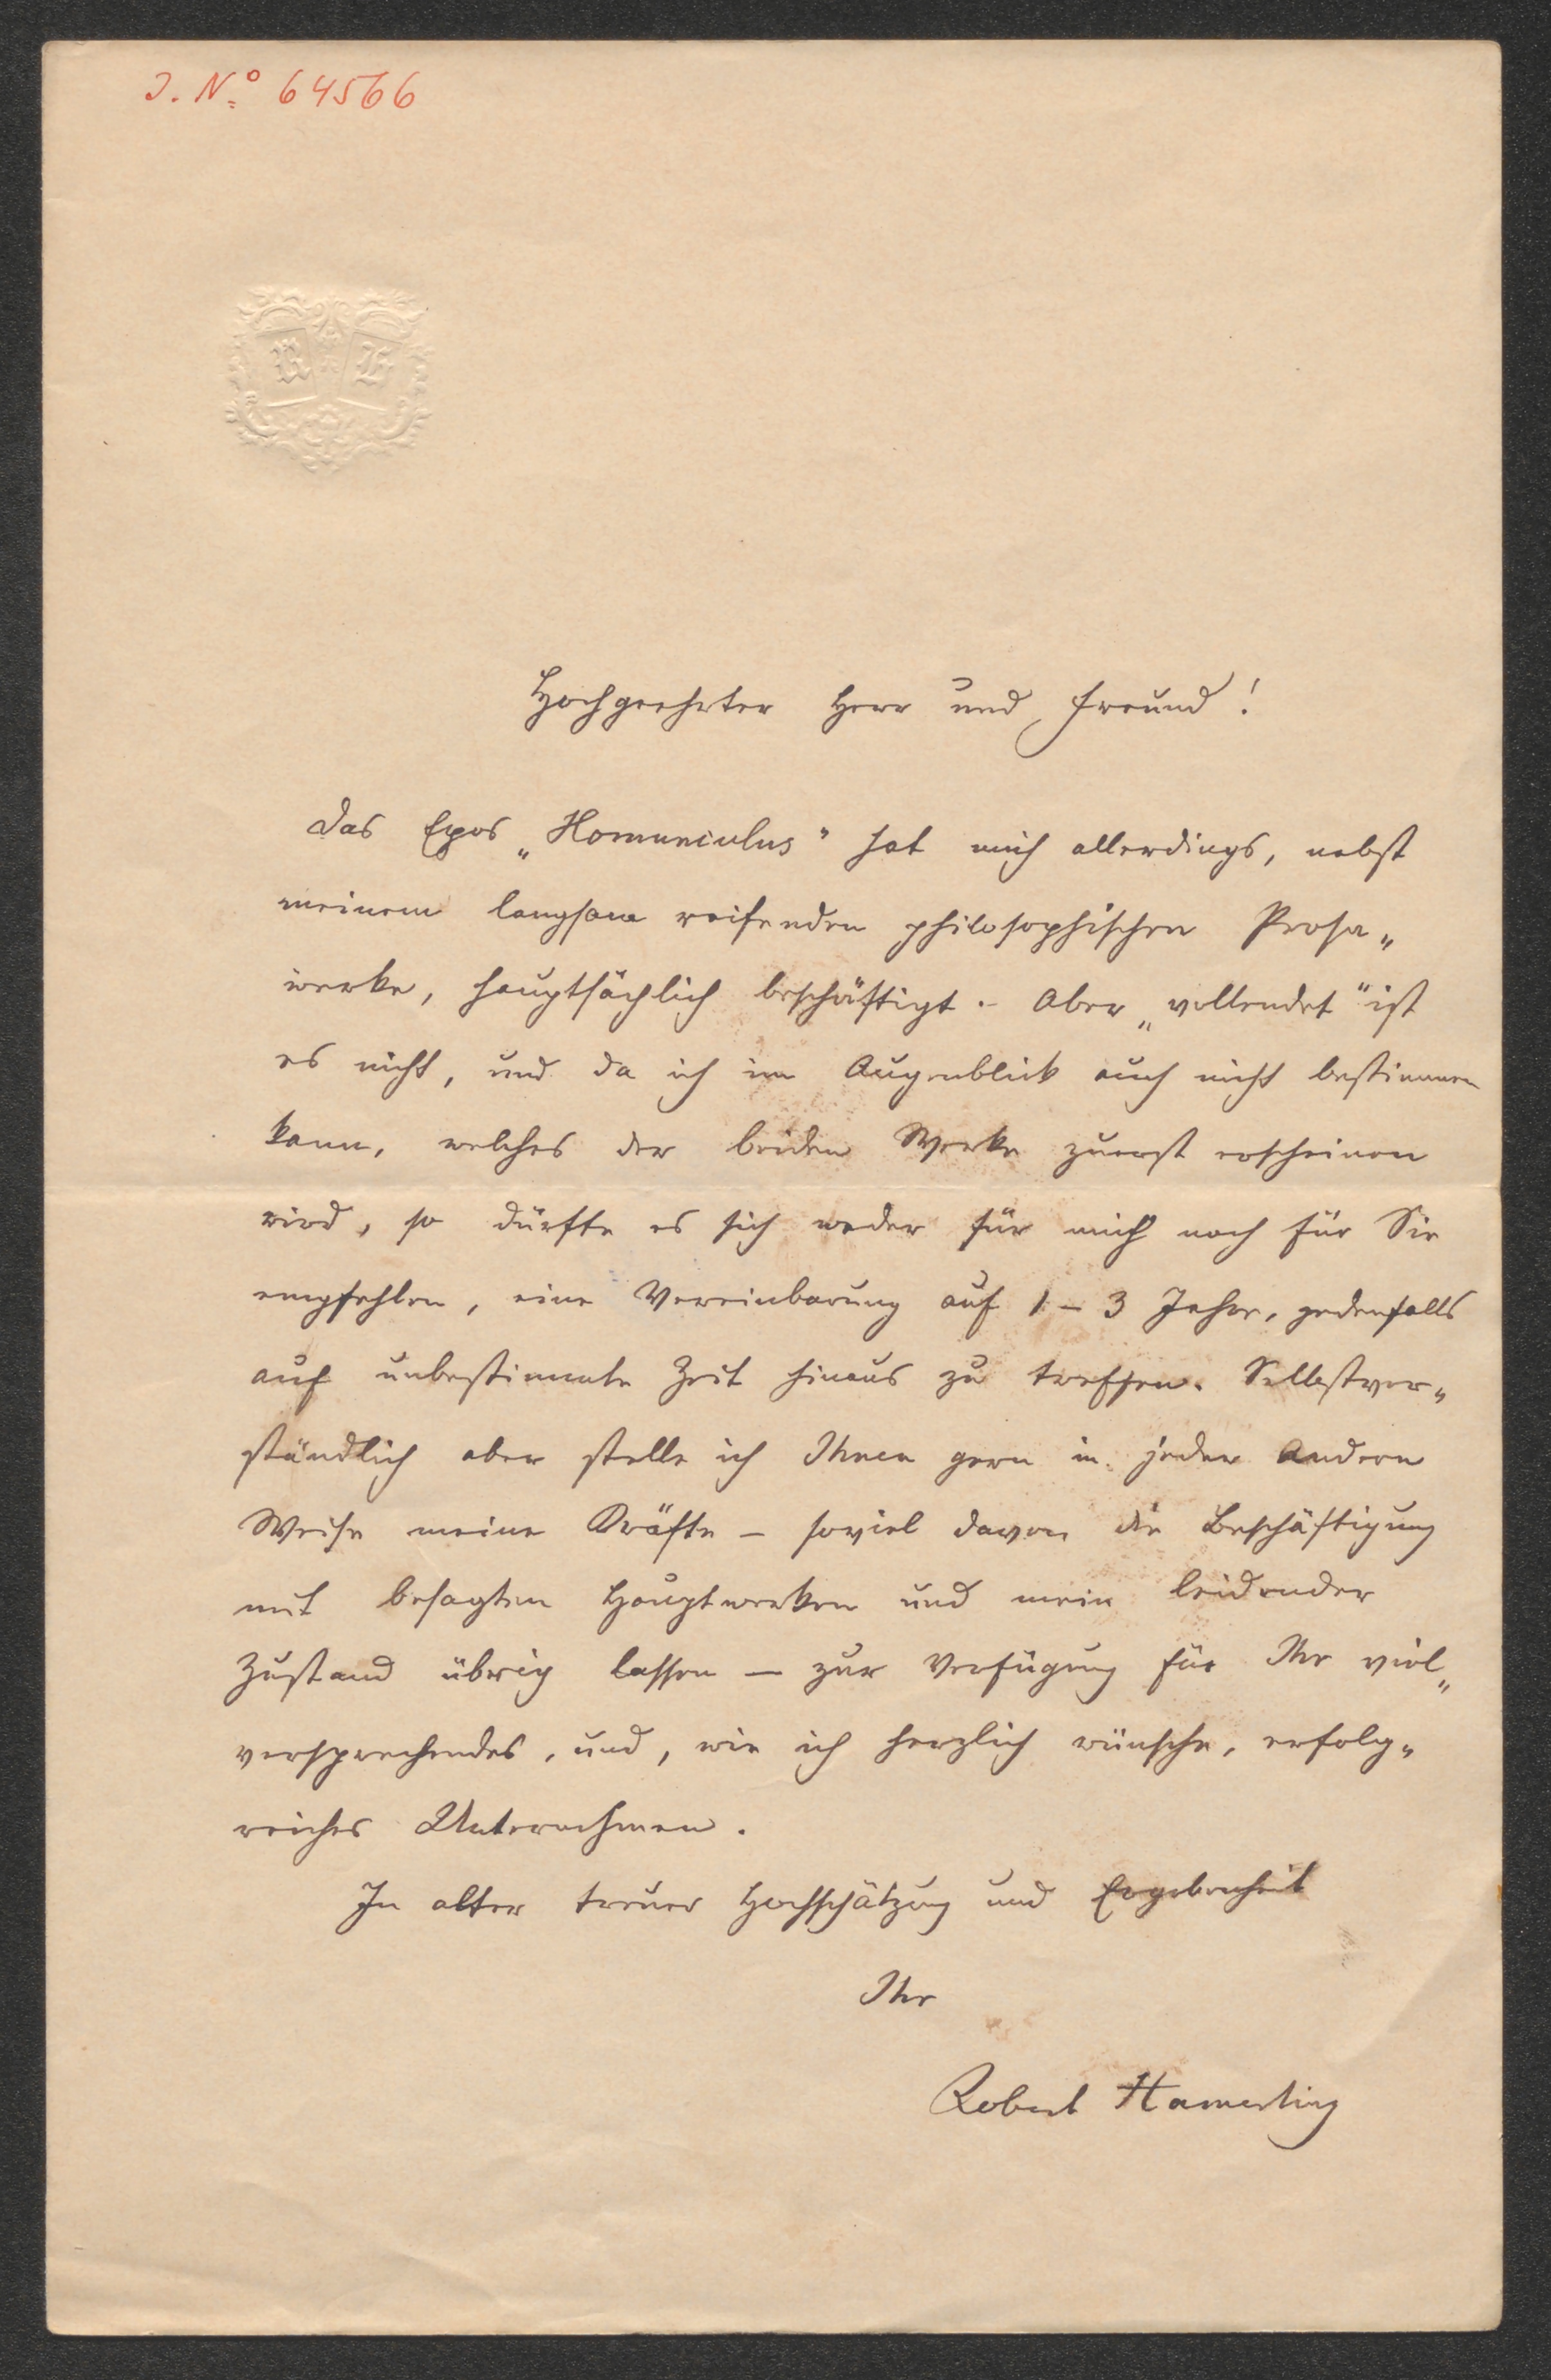 J. No 64566
R H
Hochgeehrter Herr und Freund!
Das Epos „Homunculus" hat mich allerdings, nebst
meinem langsam reifenden philosophischen Prosa„
werke, hauptsächlich beschäftigt. – Aber „vollendet" ist
es nicht, und da ich im Augenblick auch nicht bestimmen
kann, welches der beiden Werke zuerst erscheinen
wird, so dürfte es sich weder für mich noch für Sie
empfehlen, eine Vereinbarung auf 1 – 3 Jahre, jedenfalls
auf unbestimmte Zeit hinaus zu treffen. Selbstver„
ständlich aber stelle ich Ihnen gern in jeder andern
Weise meine Kräfte – soviel davon die Beschäftigung
mit besagten Hauptwerken und mein leidender
Zustand übrig lassen – zur Verfügung für Ihr viel„
versprechendes, und, wie ich herzlich wünsche, erfolg„
reiches Unternehmen.
In alter treuer Hochschätzung und Ergebenheit
Ihr
Robert Hamerling